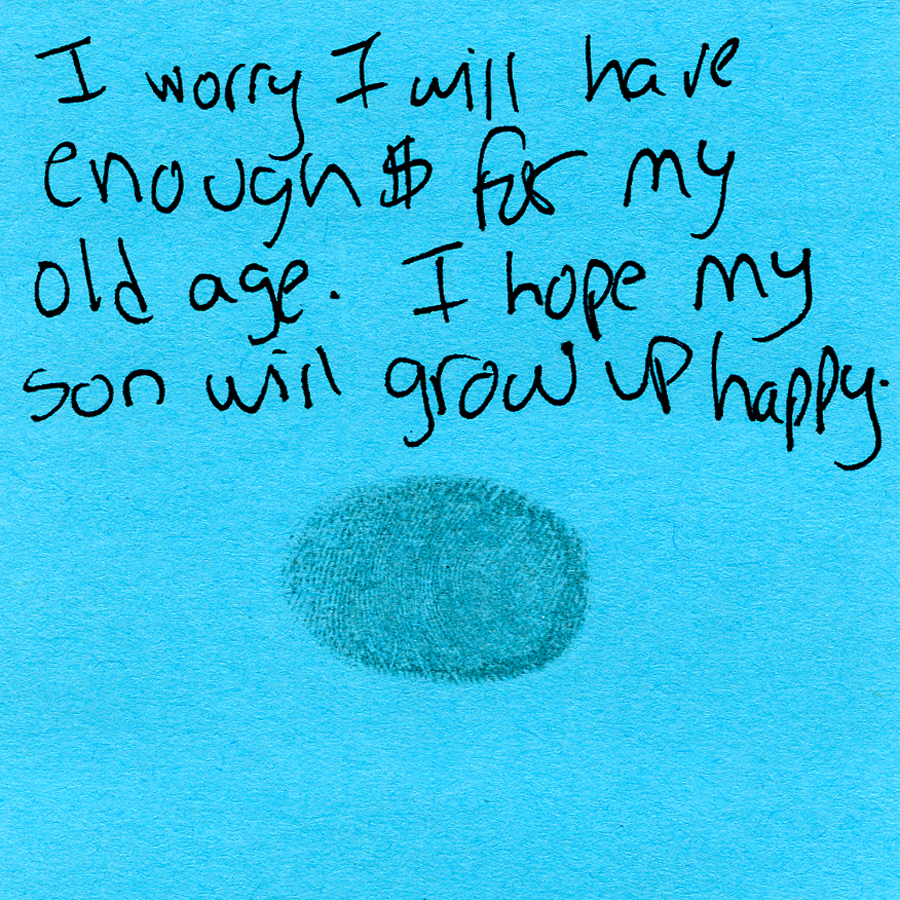 I worry I will have
enough $ for my
old age. I hope my
son will grow up happy.